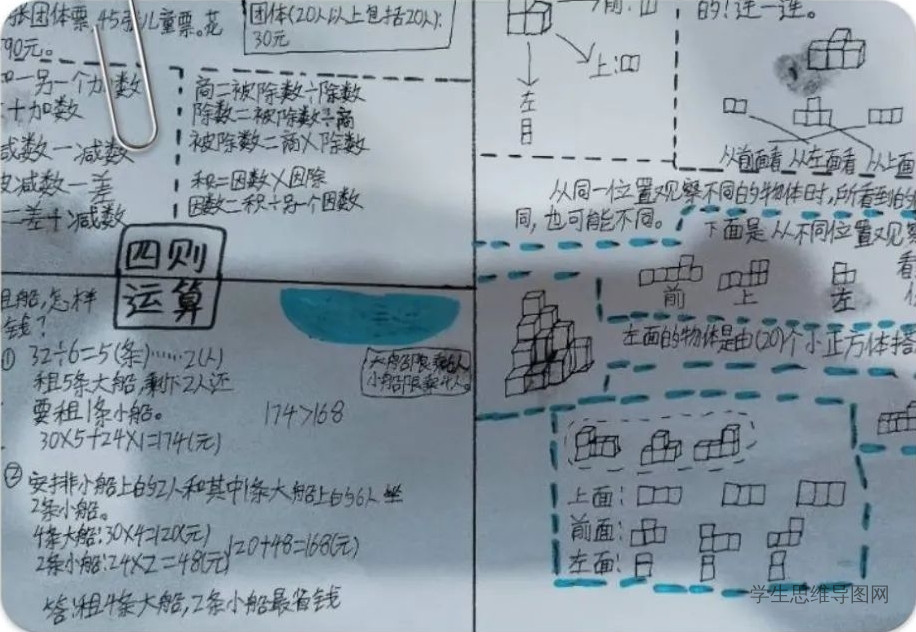 张团体票,45张儿童票。花
90元。
团体(20人以上包括20人):
30元
另一个加数
十加数
减数一减数
减数一差
二差十减数
商二被除数÷除数
除数二被除数÷商
被除数二商X除数
积二因数X因除
因数二积÷另一个因数
四则
运算
且船,怎样
钱?
① 32÷6=5(条)……2(人)
租5条大船,剩下2人还
要租1条小船。
30X5+24X1=174(元)
大船限乘6人
小船限乘4人。
174>168
② 安排小船上的2人和其中1条大船上的6人坐
2条小船。
4条大船:30X4=120(元)
2条小船:24X2=48(元)
120+48=168(元)
答:租4条大船,2条小船最省钱
前:
上:
左
的!连一连。
从前面看 从左面看 从上面
从同一位置观察不同的物体时,所看到的
同,也可能不同。
下面是从不同位置观察
看
前 上 左
左面的物体是由(20)个小正方体搭
上面:
前面:
左面:
学生思维导图网